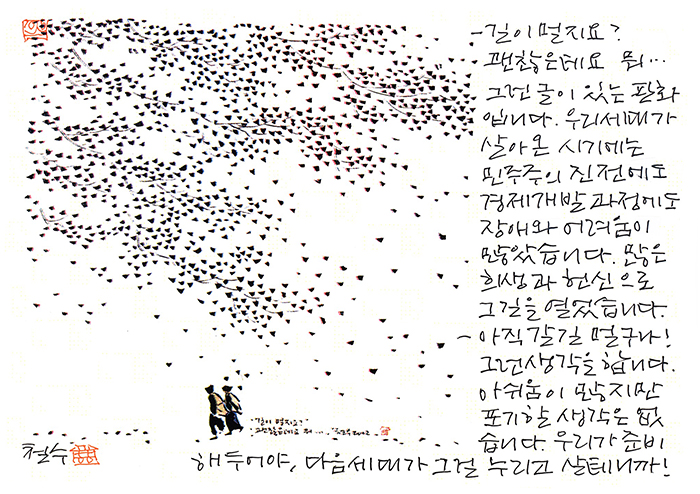 -길이 멀지요?
괜찮은데요 뭐…
그런 글이 있는 판화
입니다. 우리세대가
살아온 시기에는
민주주의 진전에도
경제개발과정에도
장애와 어려움이
많았습니다. 많은
희생과 헌신으로
그길을 열었습니다.
-아직 갈길 멀구나!
그런생각을 합니다.
아쉬움이 많지만
포기할 생각은 없
습니다. 우리가 준비
해 두어야, 다음세대가 그걸 누리고 살테니까!
길이 멀지요?
괜찮은데요 뭐…
철수